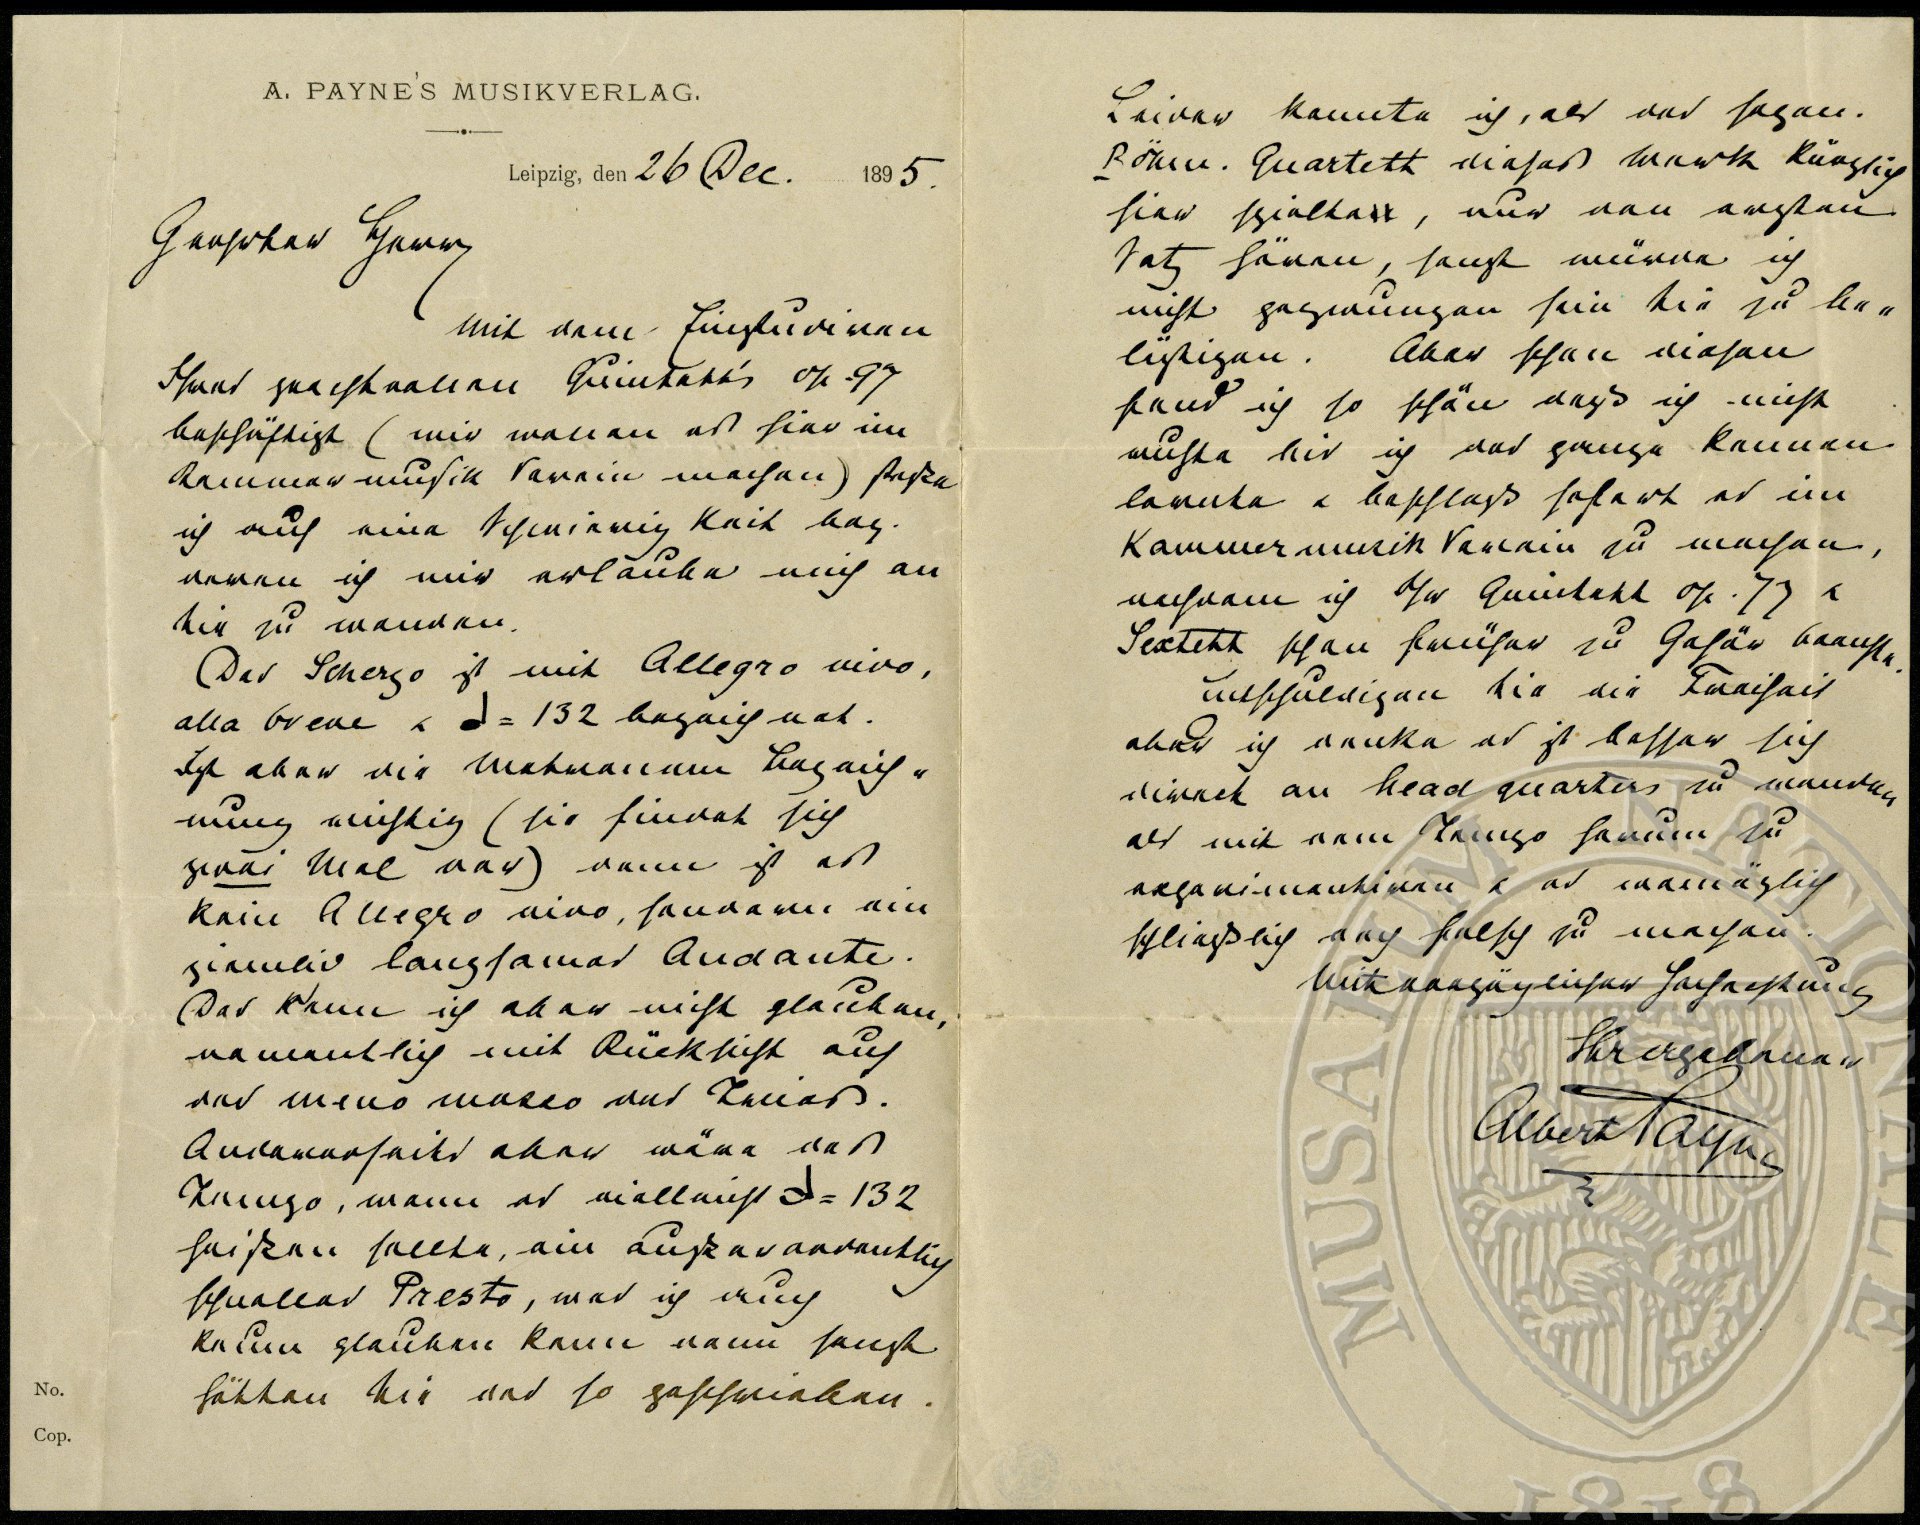 A. PAYNE'S MUSIKVERLAG.
Leipzig, den 26 Dec. 1895.
Geehrter Herr
Mit dem Einstudiren
Ihres prachtvollen Quintett's op. 97
beschäftigt (wir wollen es hier im
Kammermusik Verein machen) stoße
ich auf eine Schwierigkeit bez.
deren ich mir erlaube mich an
Sie zu wenden.
Das Scherzo ist mit Allegro vivo,
alla breve & 𝅗𝅥 = 132 bezeichnet.
Ist aber die Metronom Bezeich-
nung richtig (sie findet sich
zwei Mal vor) dann ist es
kein Allegro vivo, sondern ein
ziemlich langsames Andante.
Das kann ich aber nicht glauben,
namentlich mit Rücksicht auf
das meno mosso des Trios.
Andererseits aber wäre das
Tempo, wenn es vielleicht 𝅗𝅥 = 132
heißen sollte, ein außerordentlich
schnelles Presto, was ich auch
kaum glauben kann denn sonst
hätten Sie das so geschrieben.
No.
Cop.
Leider konnte ich, als das sogen.
Böhm. Quartett dieses Werk kürzlich
hier spielte, nur den ersten
Satz hören, sonst würde ich
nicht gezwungen sein Sie zu be-
lästigen. Aber schon diesen
fand ich so schön daß ich nicht
ruhte bis ich das ganze kennen
lernte & beschloß sofort es im
Kammermusik Verein zu machen,
nachdem ich Ihr Quintett op. 77 &
Sextett schon früher zu Gehör brachte.
Entschuldigen Sie die Freiheit
aber ich denke es ist besser sich
direct an head quarters zu wenden
als mit dem Tempo herum zu
experimentiren & es womöglich
schließlich doch falsch zu machen.
Mit vorzüglicher Hochachtung
Ihr ergebener
Albert Payne
MUSAEUM NATIONALE
1818